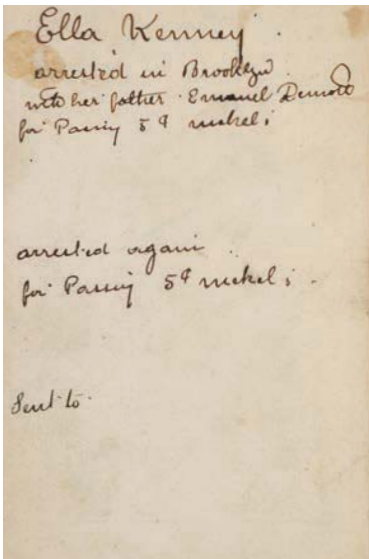 Ella Kenney.
arrested in Brooklyn
with her father Emanuel
for Passing 5¢ nickels
arrested again
for Passing 5¢ nickels.
Sent to